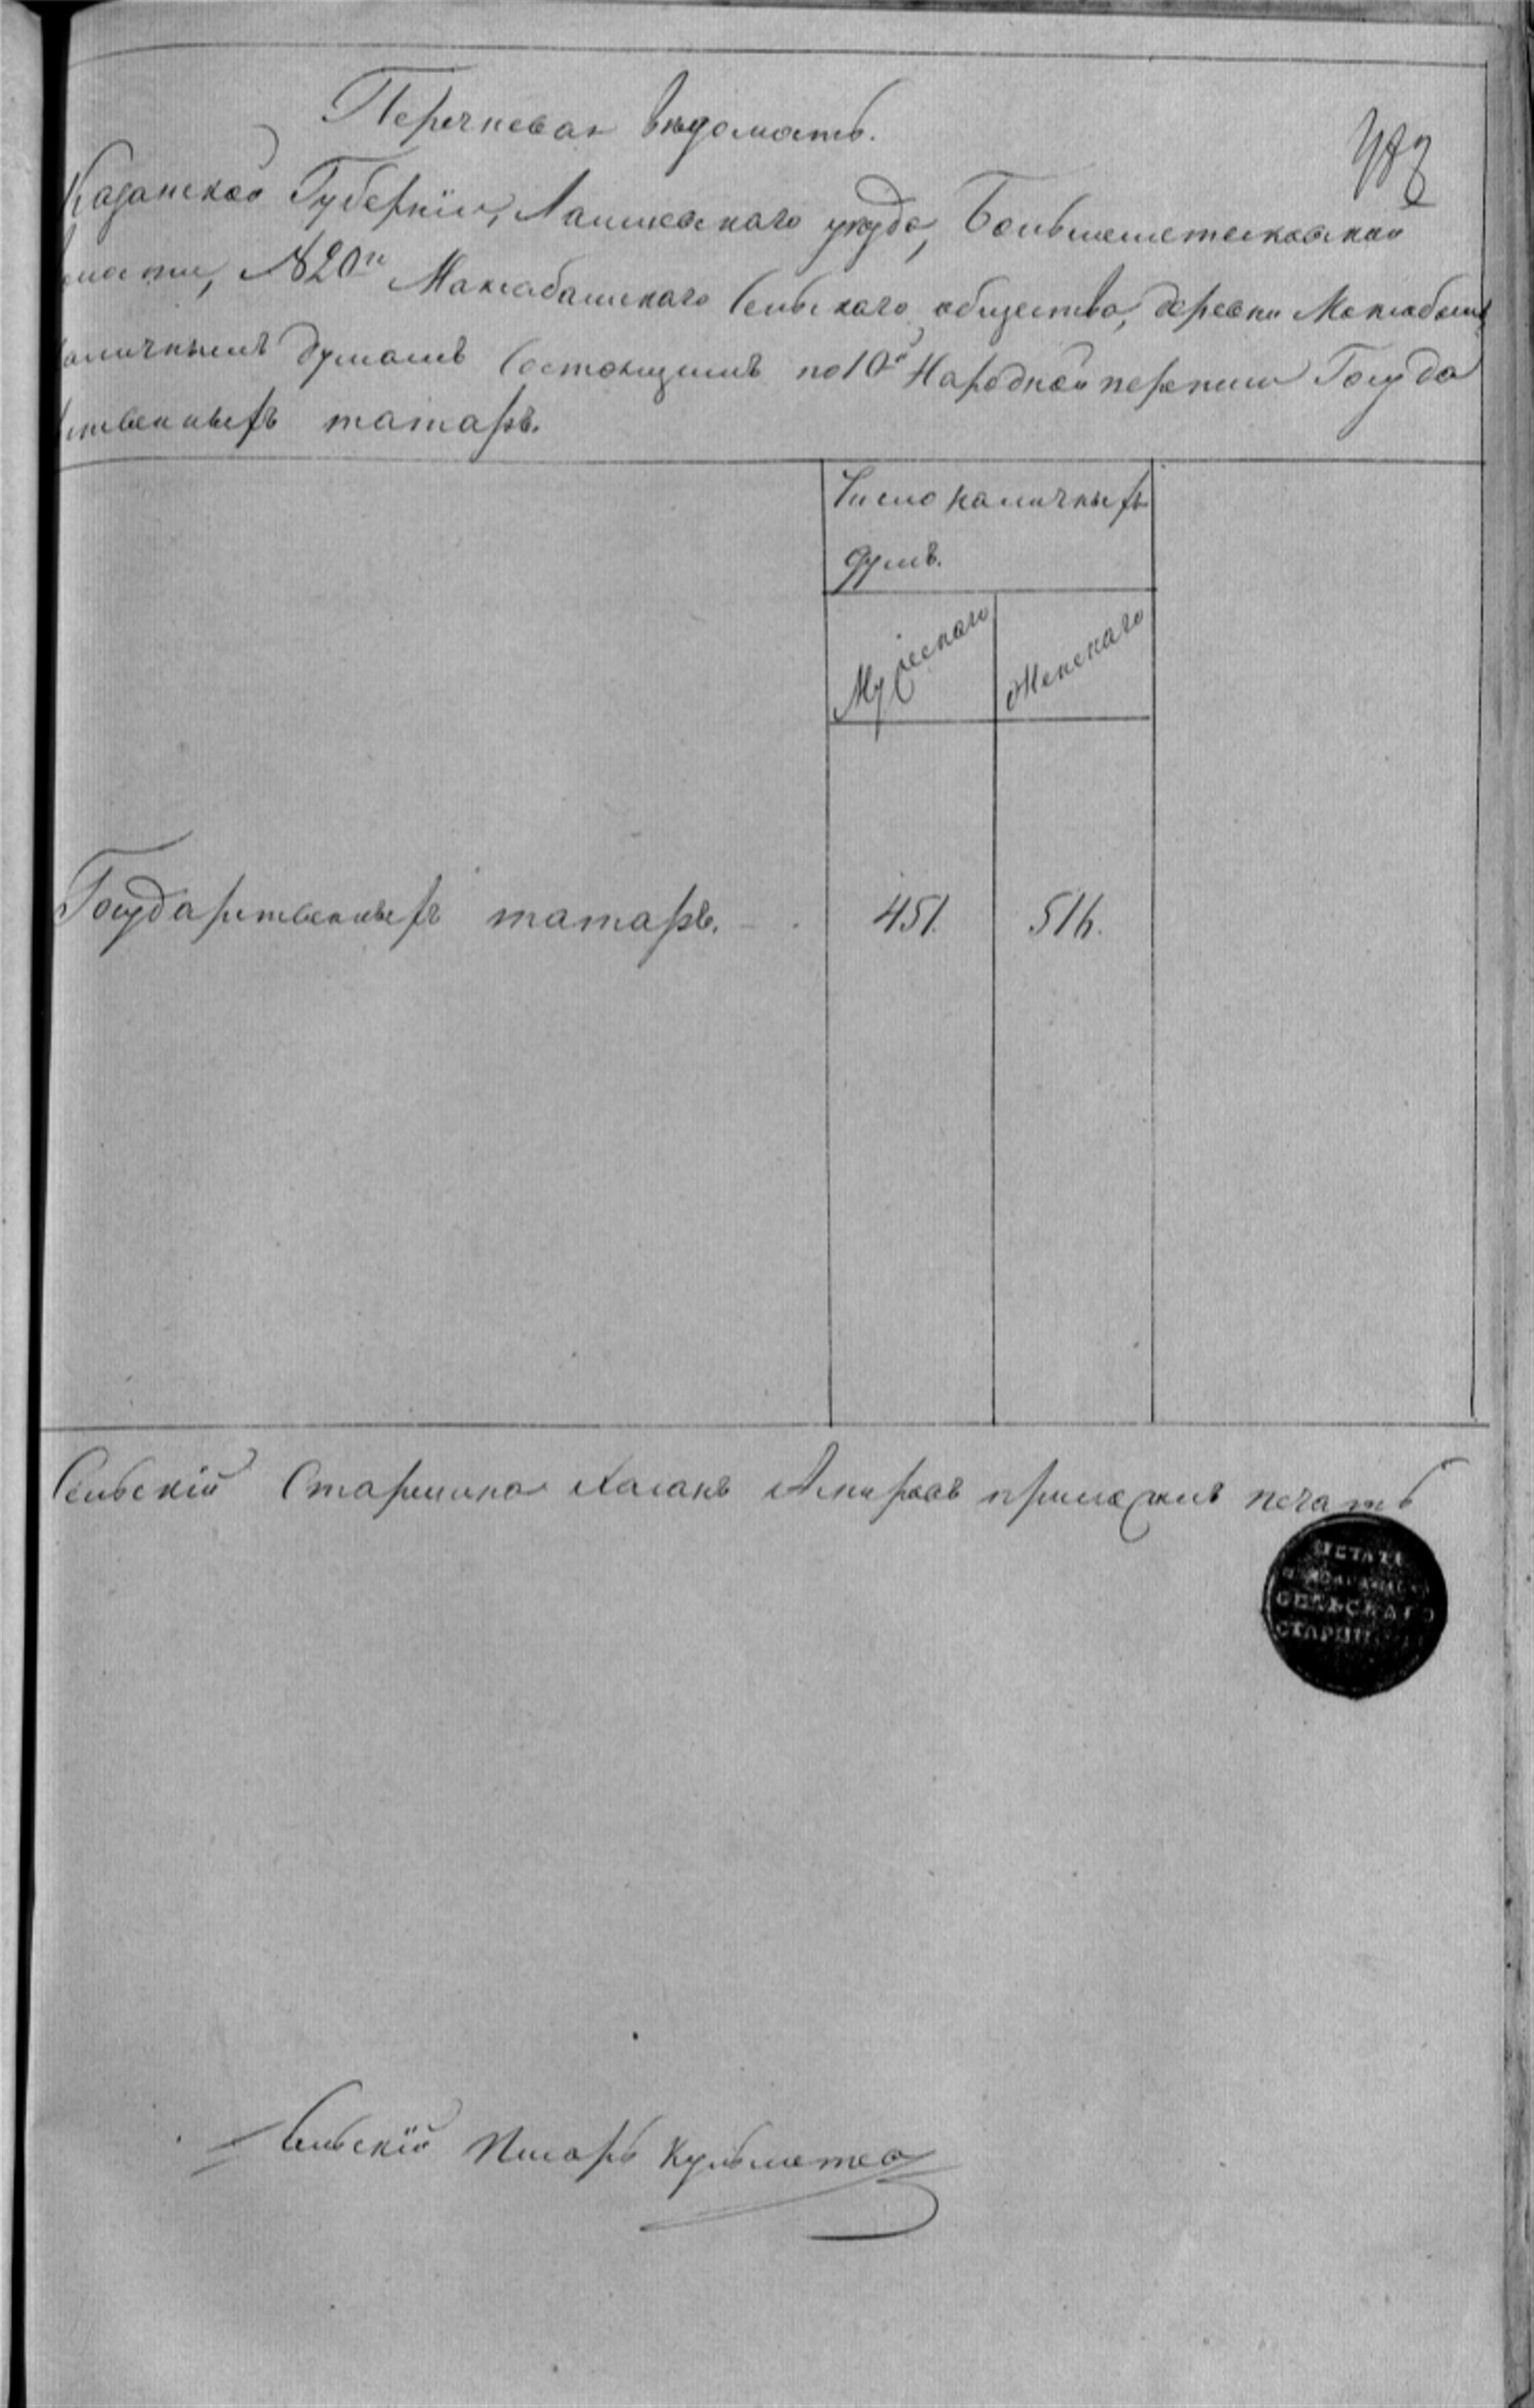 Перечневая вѣдомость.
Казанской Губерніи, Лаишевскаго уѣзда, Большеметесковской
№ 20й Максабашскаго Сельскаго общества, деревни Максабашъ
наличнымъ душамъ состоящимъ по 10й Народной переписи Госуда
ственныхъ татаръ.
Число наличныхъ
душъ.
Мужескаго Женскаго
Государственныхъ татаръ. 451. 516.
Сельскій Старшина Хасанъ приложилъ печать
ПЕЧАТЬ
СЕЛЬСКАГО
СТАРШИНЫ
Сельскій Писарь Кульметев